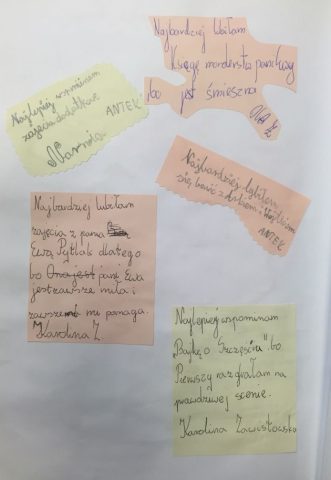 Najbardziej lubiłam
Księgę
bo jest śmieszna
Najlepiej wspominam
zajęcia dodatkowe
ANTEK
Narnia
Najbardziej lubiłem
się bawić z
ANTEK
Najbardziej lubiłam
zajęcia z panią
Ewą Pytlak dlatego
bo Ona jest pani Ewa
jest zawsze miła i
zawsze mi pomaga.
Karolina Z.
Najlepiej wspominam
„Bajkę o Szczęściu” bo
Pierwszy raz grałam na
prawdziwej scenie.
Karolina Zawistowska